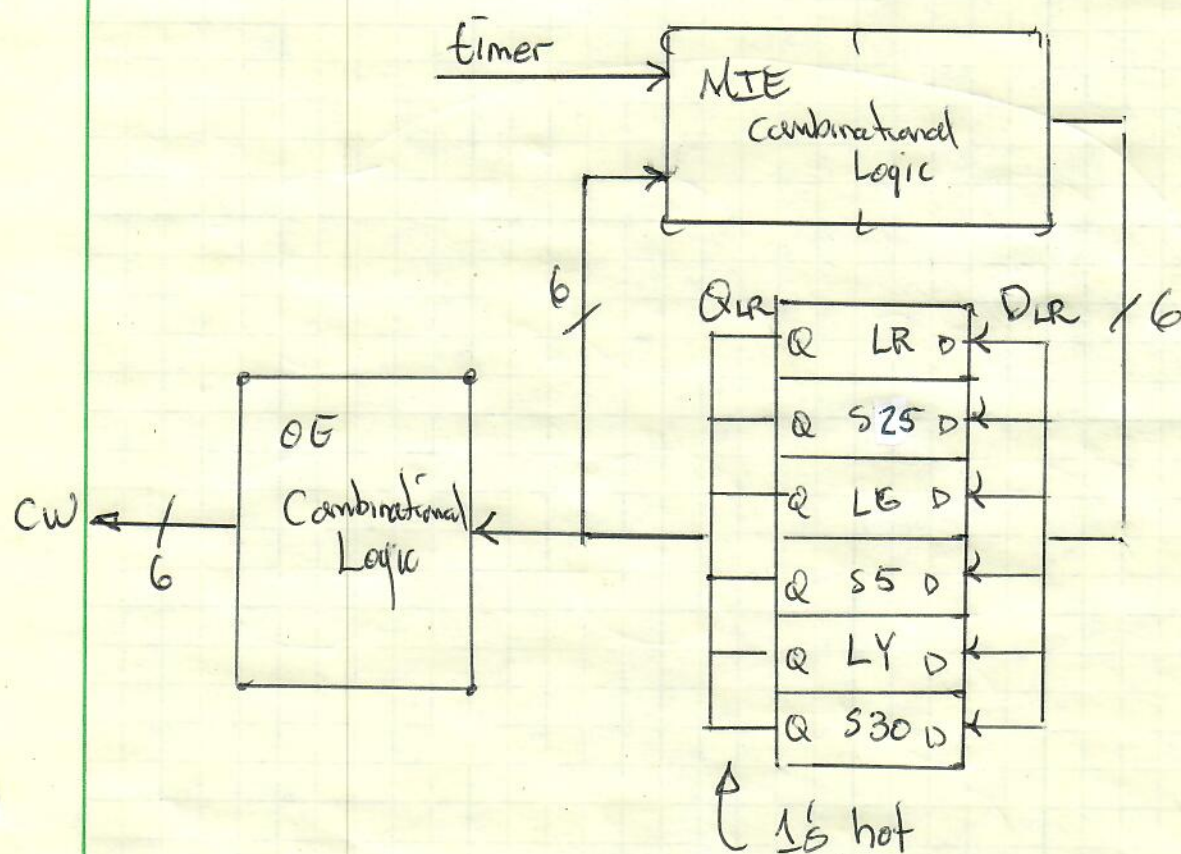 timer
MIE
Combinational
Logic
6
QLR
DLR
6
Q LR D
Q S25 D
Q LG D
Q S5 D
Q LY D
Q S30 D
OE
Combinational
Logic
CW
6
1's hot